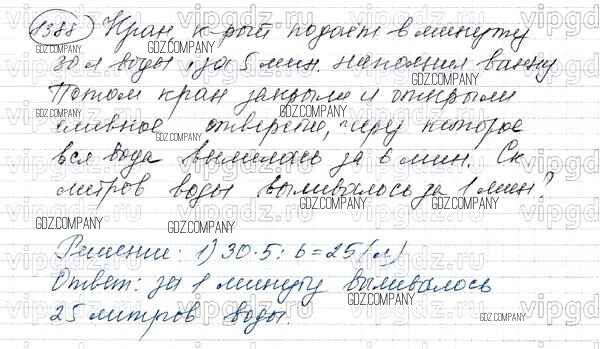 1388 Кран, к-рый подаёт в минуту
30 л воды, за 5 мин. наполнил ванну
Потом кран закрыли и открыли
сливное отверстие, через которое
вся вода вылилась за 6 мин. Ск
литров воды выливалось за 1 мин?
Решение: 1) 30·5:6=25(л)
Ответ: за 1 минуту выливалось
25 литров воды.